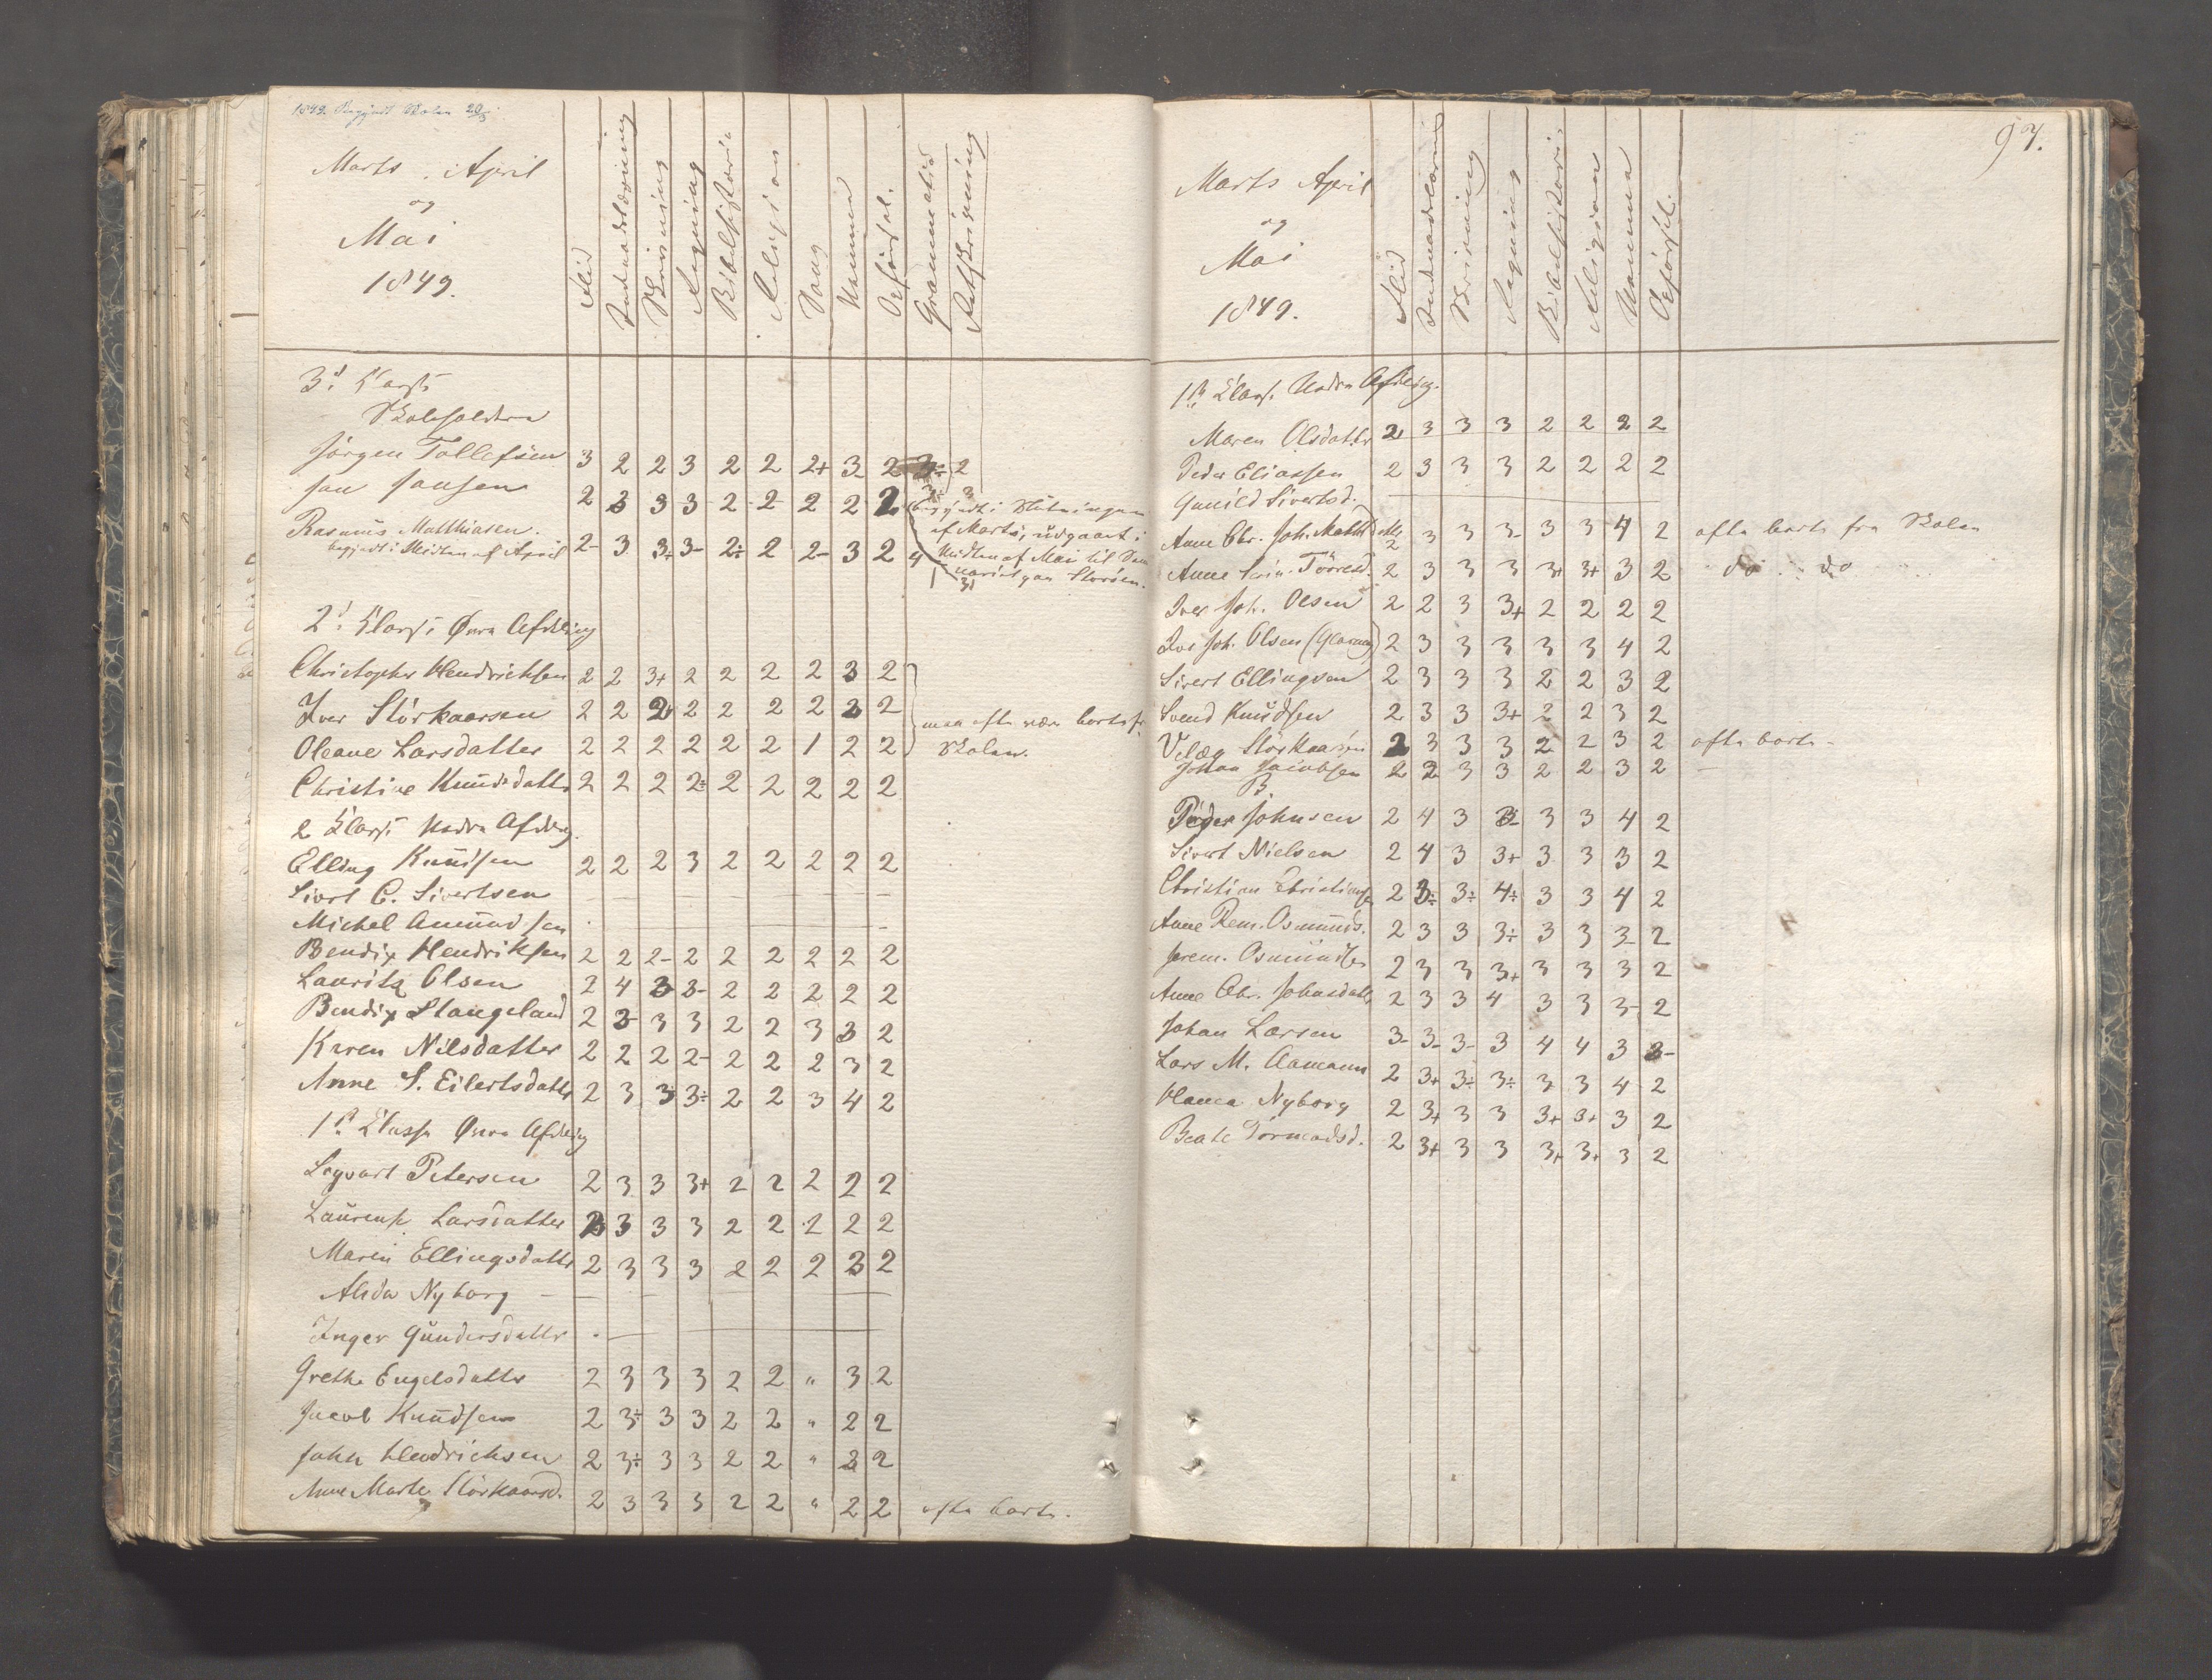 1849. Begyndt Skolen 20/3
Marts. April
og
Mai
1849.
Flid
Indenadslæsning
Skrivning
Regning
Bibelhistorie
Religion
Sang
Nemme
Opførsel.
Grammatik
Retskrivning
3d. Classe
Jørgen Tollefsen 3 2 2 3 2 2 2+ 3 2 2
Jan Jansen 2 3 3 3 2 2 2 2 2
Rasmus Matthiasen. 2- 3 3+ 3- 2÷ 2 2- 3 2 4
begyndt i Midten af April
begyndt i Slutningen
af Marts, udgaaet i
Midten af Mai til
2d. Classe Øvre Afdeling
Christopher Hendrichsen 2 2 3+ 2 2 2 2 3 2
Iver Störkaarsen 2 2 2 2 2 2 2 2 2
Oleane Larsdatter 2 2 2 2 2 2 1 2 2
maa ofte være borte fr.
Skolen.
Christine Knudsdatter 2 2 2 2÷ 2 2 2 2 2
2 Classe Nedre Afdeling.
Elling Knudsen 2 2 2 3 2 2 2 2 2
Sivert C. Sivertsen —
Michel Amundsen —
Bendix Hendriksen 2 2 2- 2 2 2 2 2 2
Lauritz Olsen 2 4 3 3- 2 2 2 2 2
Bendix Stangeland 2 3- 3 3 2 2 3 3 2
Karen Nilsdatter 2 2 2 2- 2 2 2 3 2
Anne S. Eilertsdatter 2 3 3 3÷ 2 2 3 4 2
1ste Classe Øvre Afdeling
Sigvart Petersen 2 3 3 3+ 2 2 2 2 2
Laurense Larsdatter 2 3 3 3 2 2 2 2 2
Maren Ellingsdatter 2 3 3 3 2 2 2 3 2
Alida Nyborg —
Inger Gundersdatter —
Grethe Engelsdatter 2 3 3 3 2 2 " 3 2
Jacob Knudsen 2 3÷ 3 3 2 2 " 2 2
John Hendrichsen 2 3÷ 3 3 2 2 " 2 2
Anne Marte Störkaarsd. 2 3 3 3 2 2 " 2 2 ofte borte.
97.
Marts April
og
Mai
1849.
Flid
Indenadslæsning
Skrivning
Regning
Bibelhistorie
Religion
Nemme
Opførsel.
1ste Classe Nedre Afdeling.
Maren Olsdatter 2 3 3 3 2 2 2 2
Peder Eliassen 2 3 3 3 2 2 2 2
Gunild Sivertsd. —
Anne Chr. Joh. Matth 2 3 3 3- 3 3 4 2 ofte borte fra Skolen
Anne Serin. Törresd. 2 3 3 3 3+ 3+ 3 2 do do
Iver Joh. Olsen 2 2 3 3+ 2 2 2 2
Iver Joh. Olsen 2 3 3 3 3 3 4 2
Sivert Ellingsen 2 3 3 3 2 2 3 2
Svend Knudsen 2 3 3 3+ 2 2 3 2
Störkaarsen 2 3 3 3 2 2 3 2 ofte borte -
Johan Jacobsen 2 2 3 3 2 2 3 2 —
B.
Peder Johnsen 2 4 3 3- 3 3 4 2
Sivert Nielsen 2 4 3 3+ 3 3 3 2
Christian Christiansen 2 3÷ 3÷ 4÷ 3 3 4 2
Anne Rem. Osmunds. 2 3 3 3÷ 3 3 3- 2
Jerem. Osmundsen 2 3 3 3+ 3 3 3 2
Anne Chr. Johnsdatt 2 3 3 4 3 3 3- 2
Johan Larsen 3- 3- 3- 3 4 4 3 3-
Lars M. Aamann 2 3+ 3÷ 3÷ 3 3 4 2
Hanna Nyborg 2 3+ 3 3 3+ 3+ 3 2
Beate Tormodsd. 2 3+ 3 3 3+ 3+ 3 2